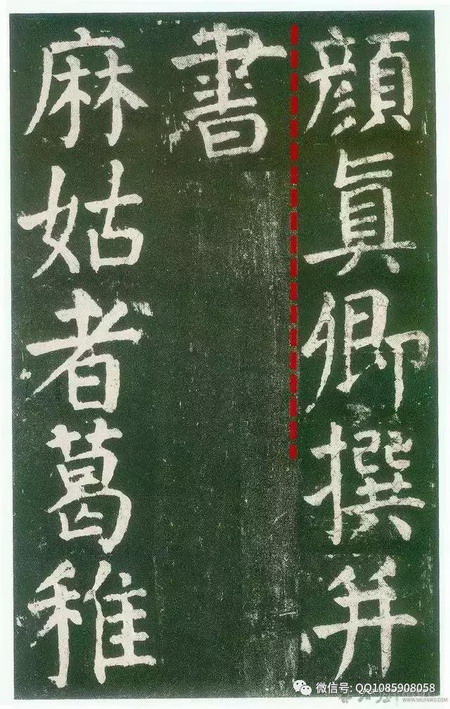 顔眞卿撰并
書
麻姑者葛稚
微信号: QQ1085908058